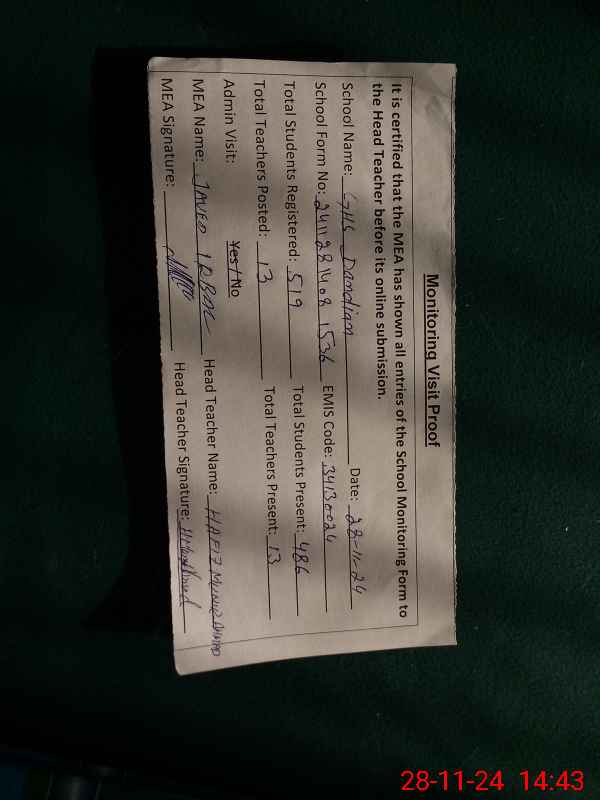 Monitoring Visit Proof
It is certified that the MEA has shown all entries of the School Monitoring Form to
the Head Teacher before its online submission.
School Name: GHS Dandian Date: 28-11-24
School Form No: 24112814081536 EMIS Code: 34130024
Total Students Registered: 519 Total Students Present: 486
Total Teachers Posted: 13 Total Teachers Present: 13
Admin Visit: Yes/No
MEA Name: JAVED IQBAL Head Teacher Name: HAFIZ MUNIR AHMAD
MEA Signature: Head Teacher Signature:
28-11-24 14:43